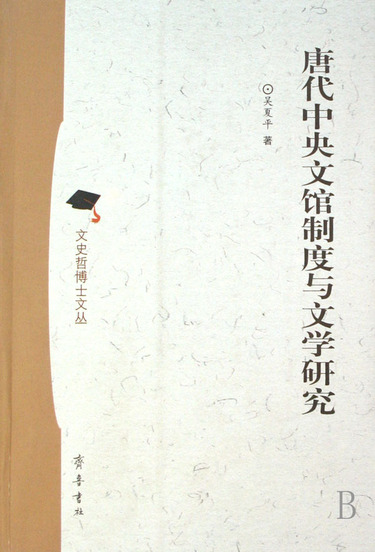 唐代中央文馆制度与文学研究
⊙吴夏平 著
文史哲博士文丛
齐鲁书社
B